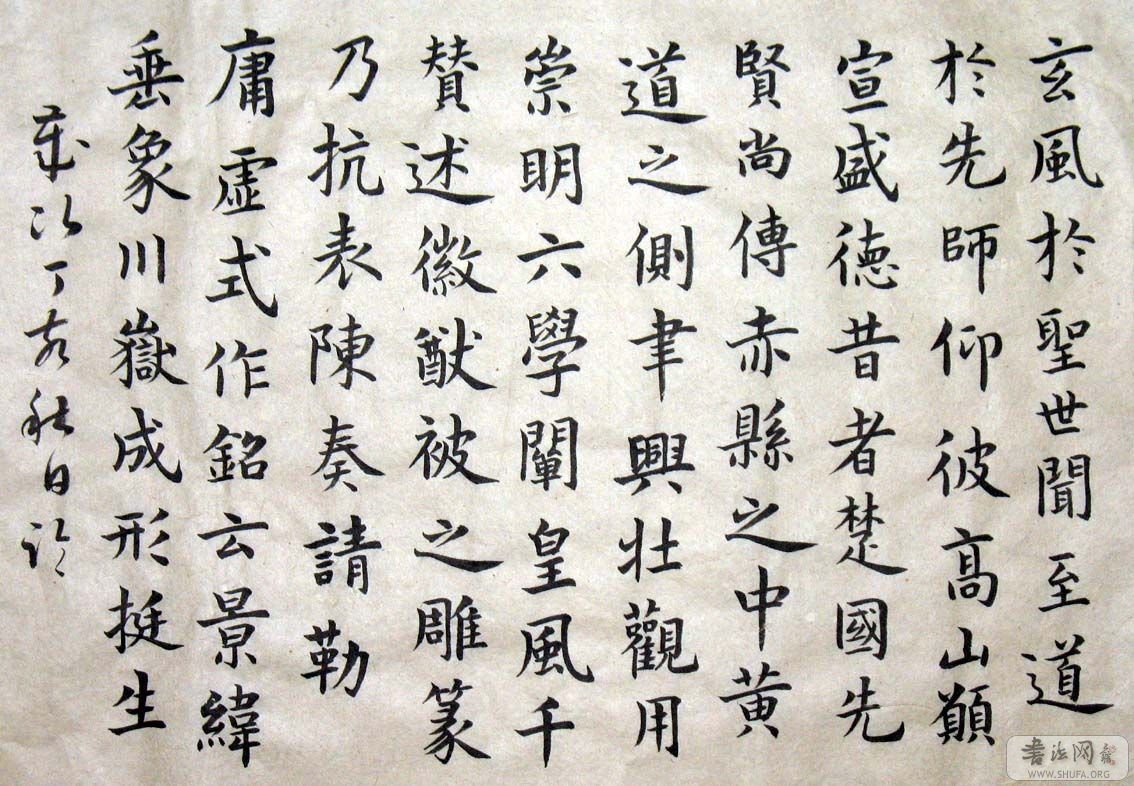 玄風於聖世聞至道
於先師仰彼高山願
宣盛德昔者楚國先
賢尚傳赤縣之中黃
道之側聿興壯觀用
崇明六學闡皇風千
賛述徽猷被之雕篆
乃抗表陳奏請勒
庸虛式作銘云景緯
垂象川嶽成形挺生
歲次丁亥秋日臨
書法网
WWW.SHUFA.ORG